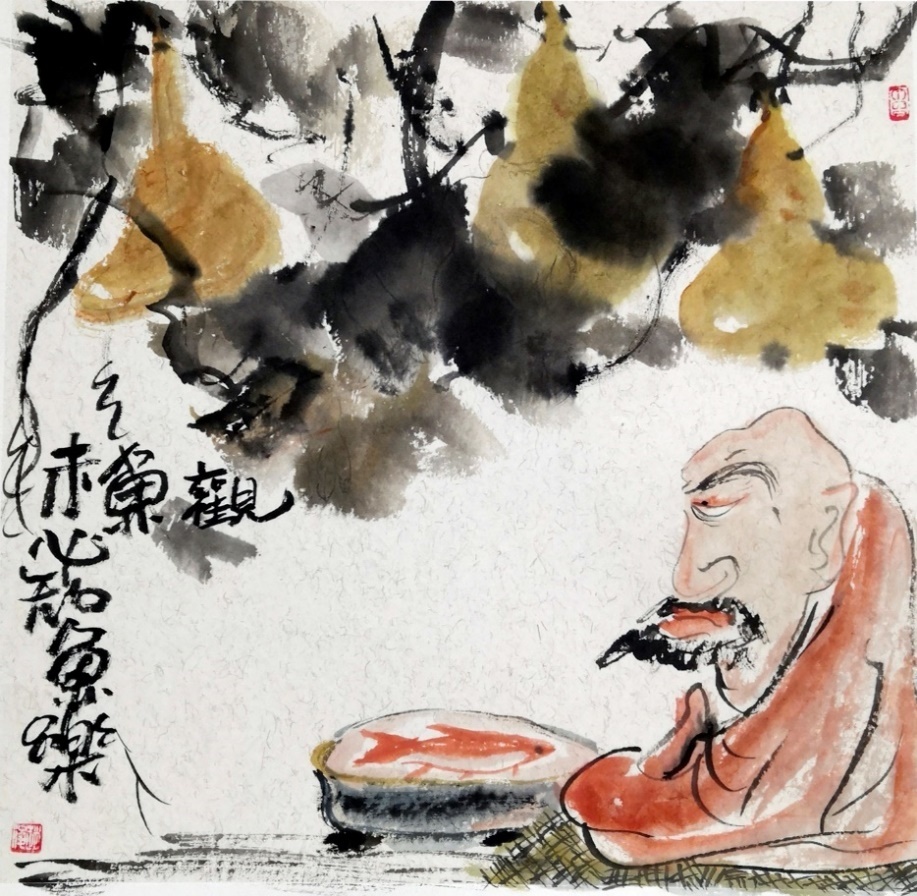 觀魚
未必知魚樂